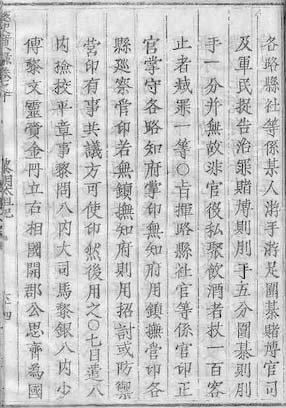 各路縣社等係某人游手游足圍棊賭博官司
及軍民捉告治罪賭博則刖手五分圍棊則刖
手一分并無故非官役私聚飲酒者杖一百客
止者減罪一等○旨揮路縣社官等係官印正
官掌守各路知府掌印無知府用鎮撫管印各
縣巡察管印若無鎮撫知府則用招討或防禦
管印有事共議方可使印然後用之○七日遣入
内檢校平章事黎問入内大司馬黎銀入内少
傅黎文靈賫金冊立右相國開郡公思齊為國